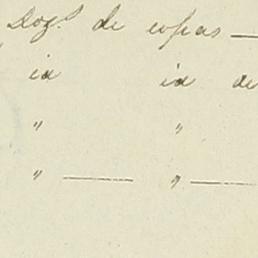 Doz.s de copas —
id id de
" "
" — " —